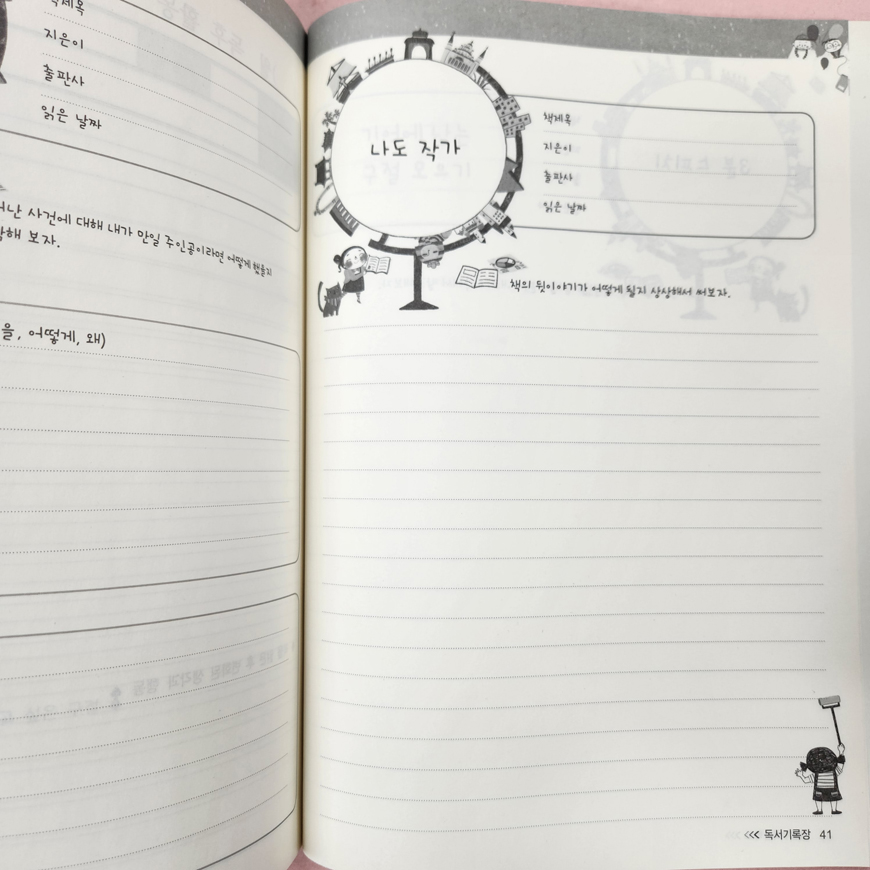 책제목
지은이
출판사
읽은 날짜
사건에 대해 내가 만일 주인공이라면 어떻게 했을지
보자.
어떻게, 왜)
나도 작가
책제목
지은이
출판사
읽은 날짜
책의 뒷이야기가 어떻게 될지 상상해서 써보자.
<<< 독서기록장 41